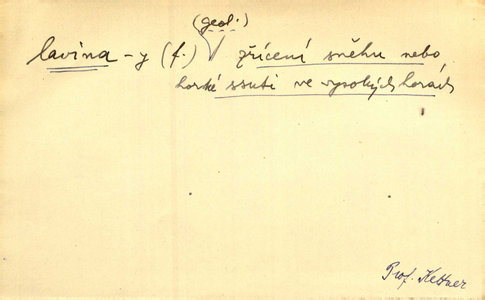 (geol.)
lavina -y (f.) zřícení sněhu nebo
horské ssuti ve vysokých horách
Prof. Kettner